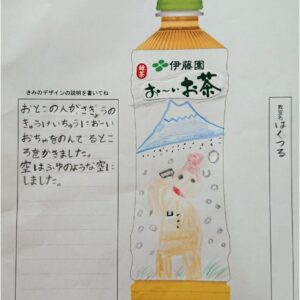 緑茶
伊藤園
お〜いお茶
きみのデザインの説明を書いてね
おとこの人がさぎょうの
きゅうけいちゅうにおーい
おちゃをのんでるところ
をかきました。
空はふゆのような空に
しました。
教室名
はくつる